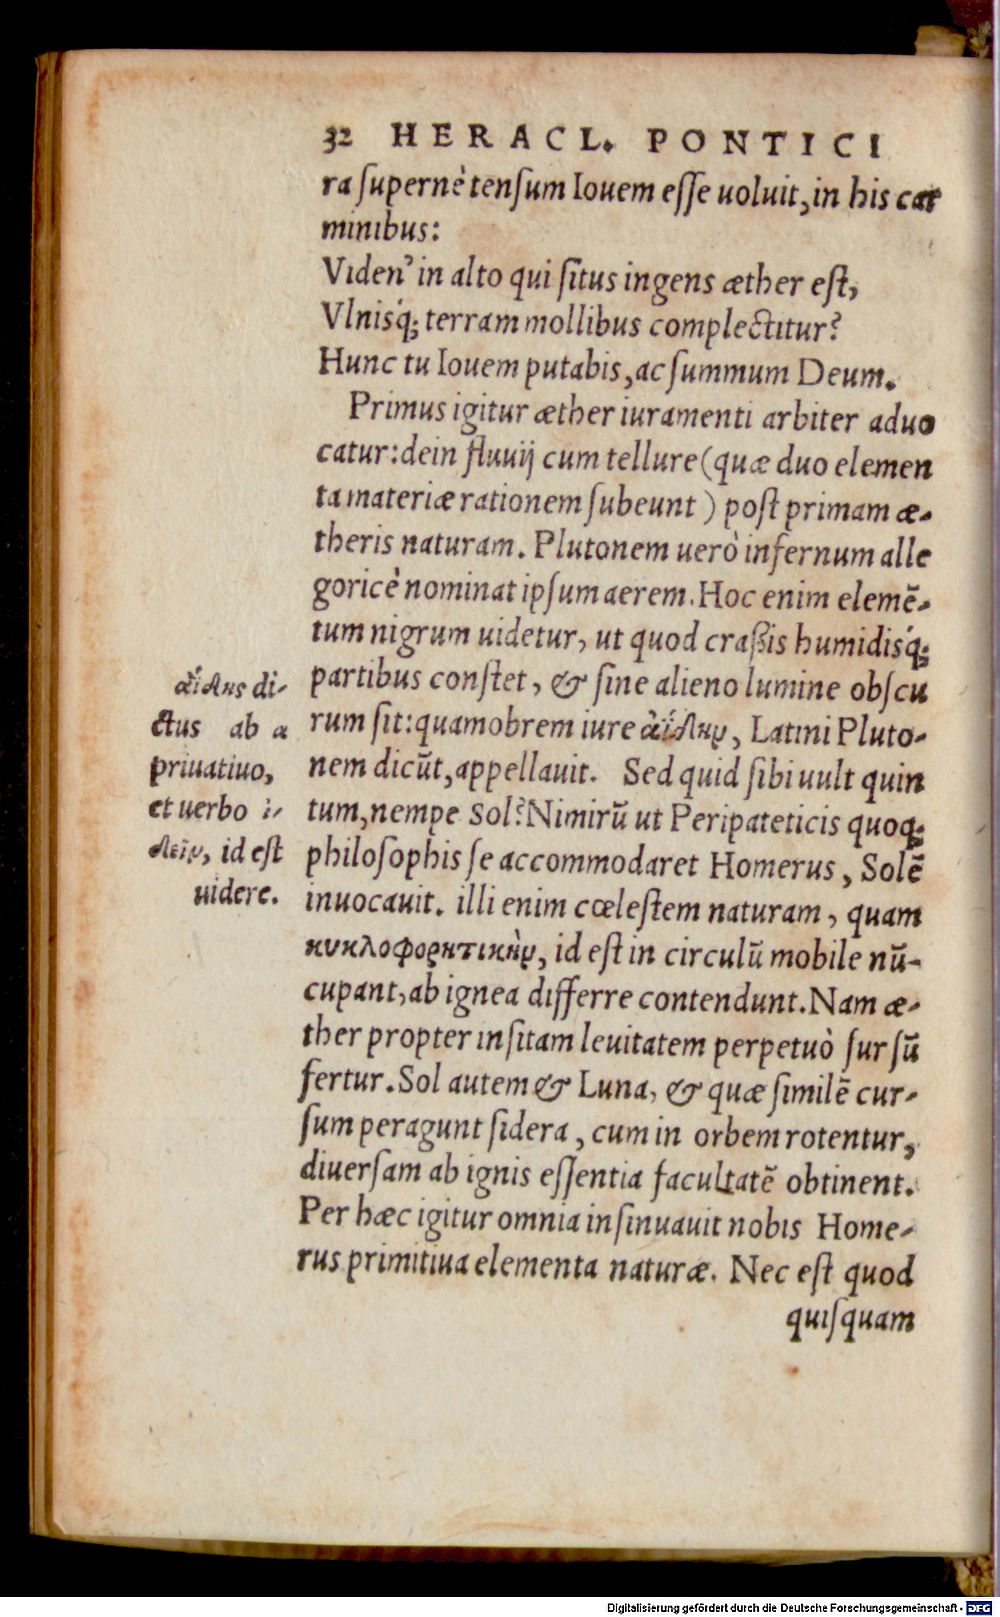 32 HERACL. PONTICI
ra supernè tensum Iouem esse uoluit, in his car
minibus:
Viden' in alto qui situs ingens æther est,
Vlnisq́; terram mollibus complectitur?
Hunc tu Iouem putabis, ac summum Deum.
Primus igitur æther iuramenti arbiter aduo
catur: dein fluuij cum tellure (quæ duo elemen
ta materiæ rationem subeunt) post primam æ-
theris naturam. Plutonem uerò infernum alle
goricè nominat ipsum aerem. Hoc enim elemē-
tum nigrum uidetur, ut quod craßis humidisq́;
partibus constet, & sine alieno lumine obscu
rum sit: quamobrem iure ἀΐδην, Latini Pluto-
nem dicūt, appellauit. Sed quid sibi uult quin
tum, nempe Sol? Nimirū ut Peripateticis quoq;
philosophis se accommodaret Homerus, Solē
inuocauit. illi enim cœlestem naturam, quam
κυκλοφορητικὴν, id est in circulū mobile nū-
cupant, ab ignea differre contendunt. Nam æ-
ther propter insitam leuitatem perpetuò sursū
fertur. Sol autem & Luna, & quæ similē cur-
sum peragunt sidera, cum in orbem rotentur,
diuersam ab ignis essentia facultatē obtinent.
Per hæc igitur omnia insinuauit nobis Home-
rus primitiua elementa naturæ. Nec est quod
quisquam
ἀΐδης di-
ctus ab α
priuatiuo,
et uerbo ἰ-
δεῖν, id est
uidere.
Digitalisierung gefördert durch die Deutsche Forschungsgemeinschaft - DFG